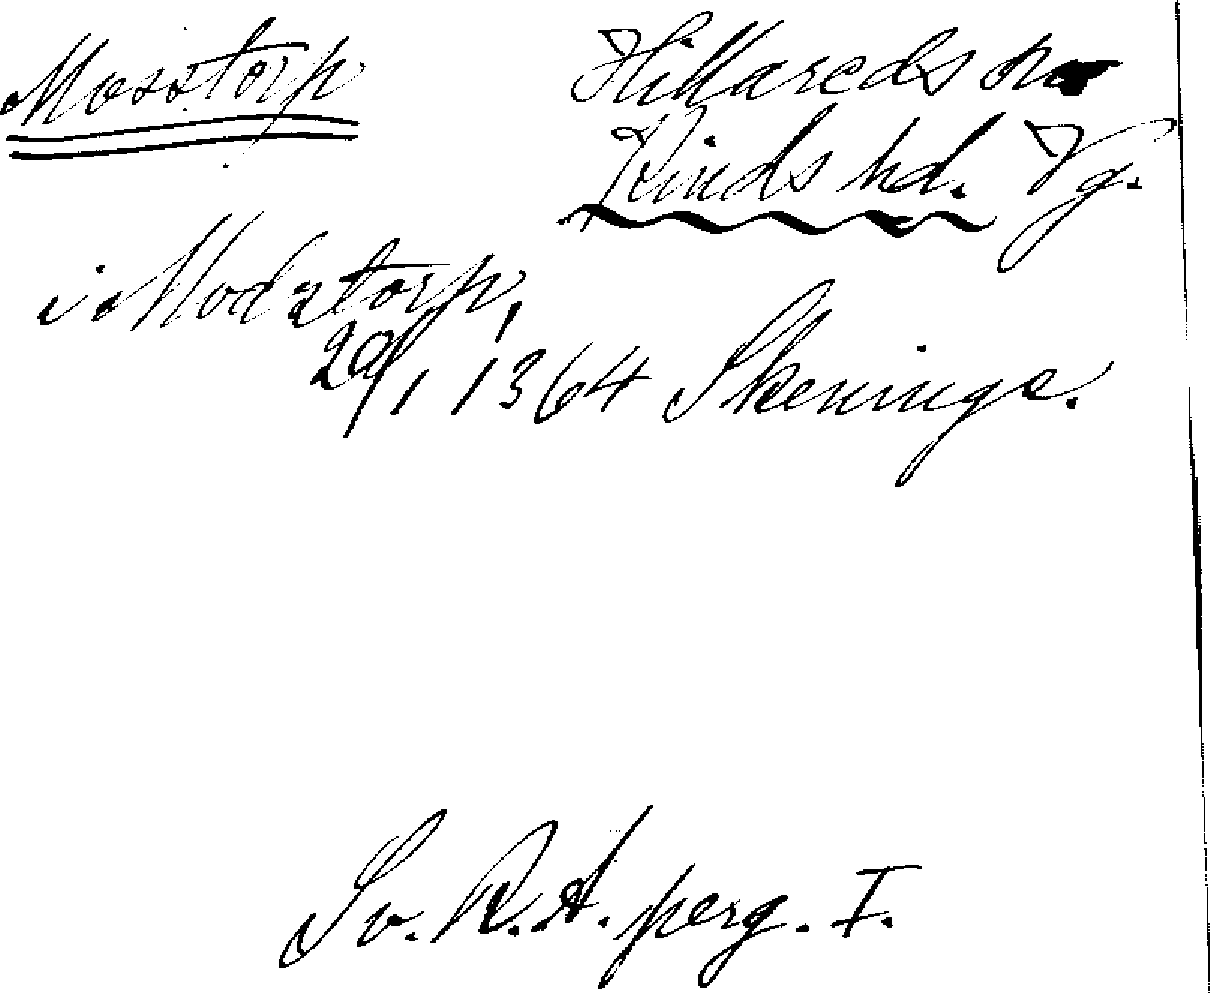 Mosstorp
Hillareds sn
Kinds hd. Vg.
i Modztorp,
29/1 1364 Skeninge.
Sv. R. A. perg. I.